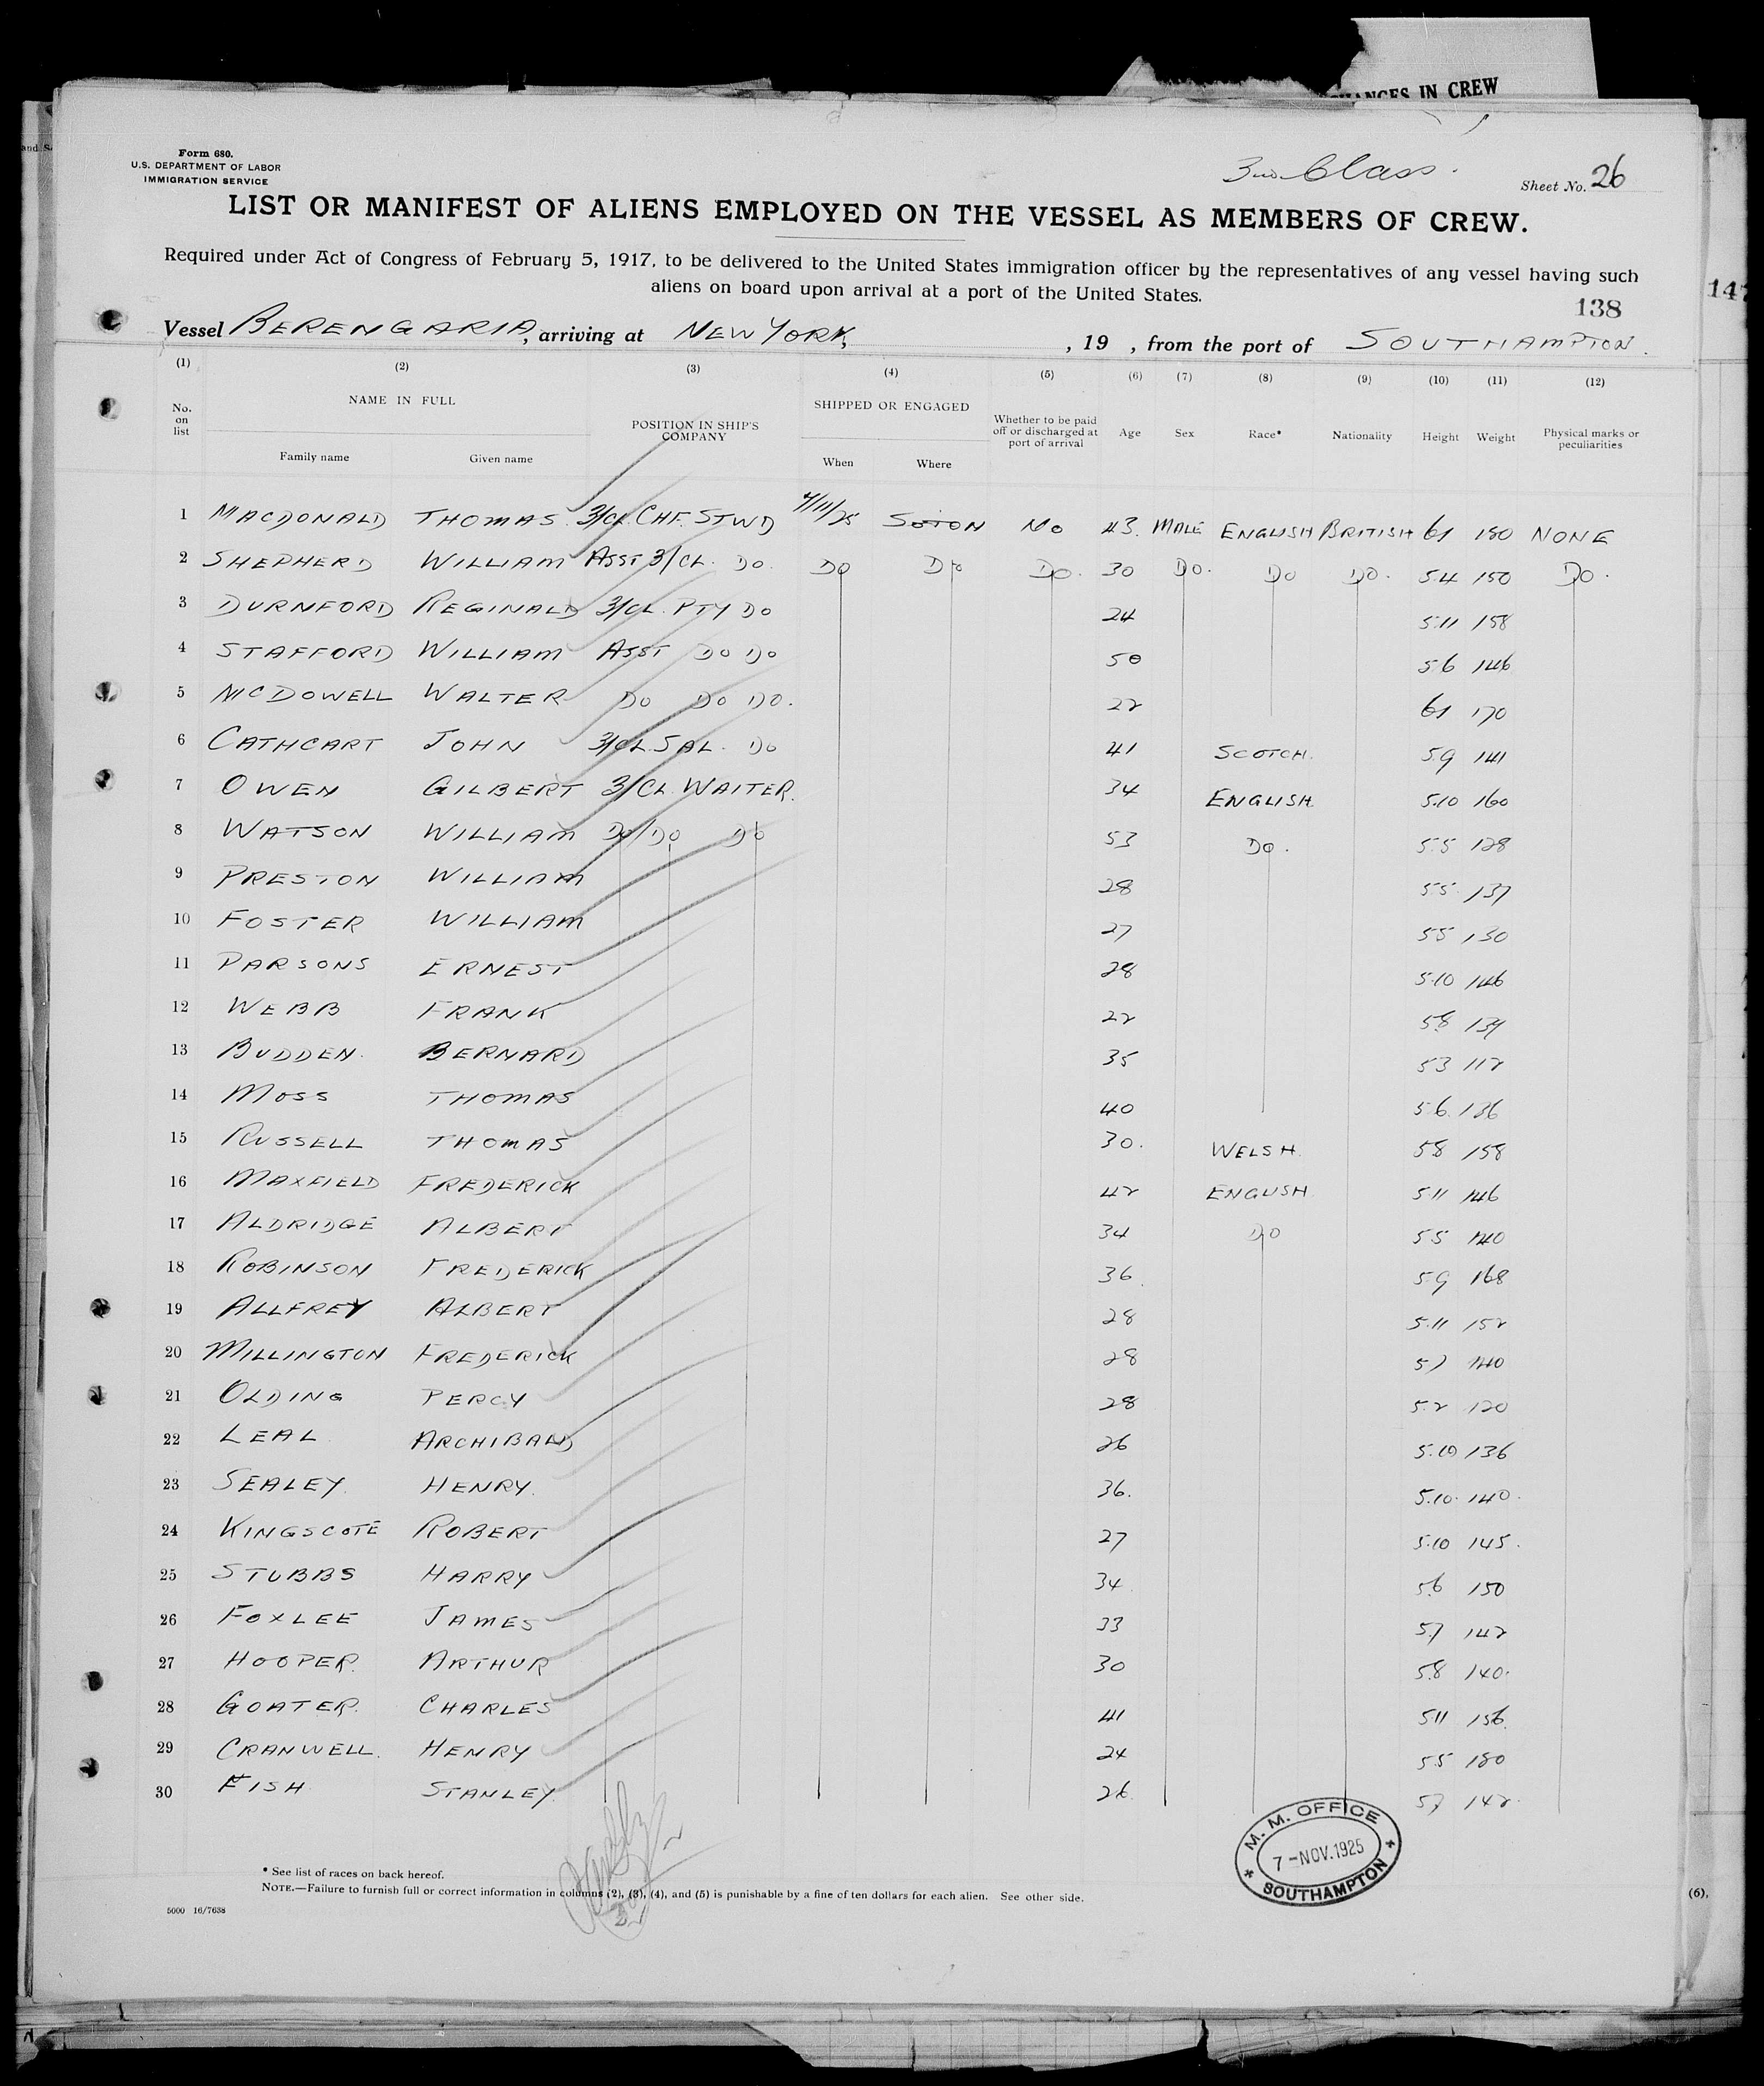 CHANGES IN CREW
and S
Form 680.
U.S. DEPARTMENT OF LABOR
IMMIGRATION SERVICE
3rd Class.
Sheet No. 26
LIST OR MANIFEST OF ALIENS EMPLOYED ON THE VESSEL AS MEMBERS OF CREW.
Required under Act of Congress of February 5, 1917, to be delivered to the United States immigration officer by the representatives of any vessel having such
aliens on board upon arrival at a port of the United States.
138
147
Vessel BERENGARIA, arriving at NEW YORK, , 19 , from the port of SOUTHAMPTON.
(1) (2) (3) (4) (5) (6) (7) (8) (9) (10) (11) (12)
No. on list NAME IN FULL POSITION IN SHIP'S COMPANY SHIPPED OR ENGAGED Whether to be paid off or discharged at port of arrival Age Sex Race* Nationality Height Weight Physical marks or peculiarities
Family name Given name When Where
1 MACDONALD THOMAS 3/CL. CHF. STWD 4/11/25 SOTON NO 43. MALE ENGLISH BRITISH 61 180 NONE
2 SHEPHERD WILLIAM ASST 3/CL. DO. DO DO DO. 30 DO. DO DO. 5.4 150 DO.
3 DURNFORD REGINALD 3/CL. PTY DO 24 5.11 158
4 STAFFORD WILLIAM ASST DO DO 50 5.6 146
5 MCDOWELL WALTER DO DO DO. 22 61 170
6 CATHCART JOHN 3/CL. SAL. DO 41 SCOTCH. 5.9 141
7 OWEN GILBERT 3/CL. WAITER. 34 ENGLISH. 5.10 160
8 WATSON WILLIAM DO/DO DO 53 DO. 5.5 128
9 PRESTON WILLIAM 28 5.5 137
10 FOSTER WILLIAM 27 5.5 130
11 PARSONS ERNEST 28 5.10 146
12 WEBB FRANK 22 5.8 139
13 BUDDEN. BERNARD 35 5.3 112
14 MOSS THOMAS 40 5.6. 136
15 RUSSELL THOMAS 30. WELSH. 5.8 158
16 MAXFIELD FREDERICK 42 ENGLISH. 5.11 146
17 ALDRIDGE ALBERT 34 DO 5.5 140
18 ROBINSON FREDERICK 36. 5.9 168
19 ALLFREY ALBERT 28 5.11 152
20 MILLINGTON FREDERICK 28 5.7 140
21 OLDING PERCY 28 5.2 120
22 LEAL ARCHIBALD 26 5.10 136
23 SEALEY. HENRY. 36. 5.10. 140.
24 KINGSCOTE ROBERT 27 5.10 145.
25 STUBBS HARRY 34 5.6 150
26 FOXLEE JAMES 33 5.7 142
27 HOOPER. ARTHUR 30 5.8 140.
28 GOATER. CHARLES 41 5.11 156.
29 CRANWELL. HENRY 24 5.5 180
30 FISH STANLEY. 26. 5.7 142.
M. M. OFFICE
7-NOV. 1925
SOUTHAMPTON
* See list of races on back hereof.
NOTE.—Failure to furnish full or correct information in columns (2), (3), (4), and (5) is punishable by a fine of ten dollars for each alien. See other side.
5000 16/7638
(6),